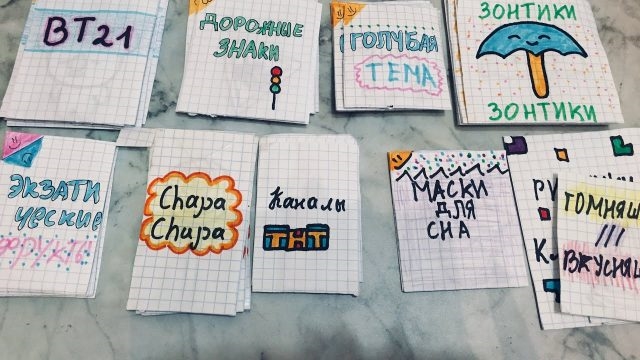 BT21
ДОРОЖНИЕ
ЗНАКИ
ГОЛУБАЯ
ТЕМА
ЗОНТИКИ
ЗОНТИКИ
ЭКЗАТИ
ЧЕСКИЕ
ФРУКТЫ
Chupa
Chups
Каналы
ТНТ
МАСКИ
ДЛЯ
СНА
ТОМНЯШ
///
ВКУСНЯШ